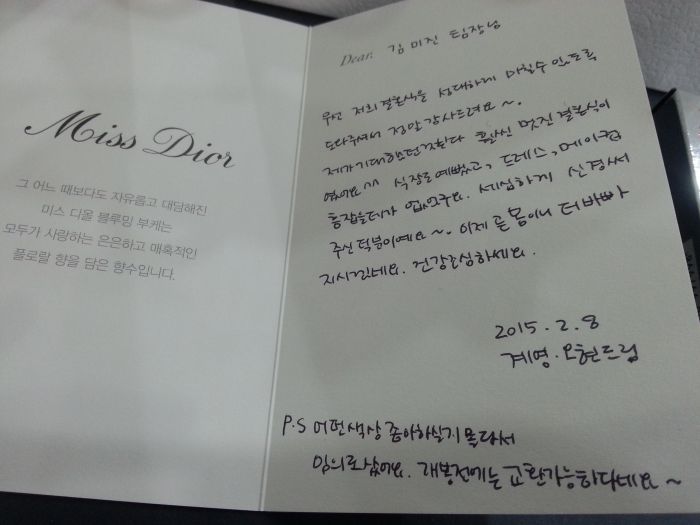 Miss Dior
그 어느 때보다도 자유롭고 대담해진
미스 디올 블루밍 부케는
모두가 사랑하는 은은하고 매혹적인
플로랄 향을 담은 향수입니다.
Dear. 김미진 팀장님
우선 저희 결혼식을 성대하게 마칠수 있도록
도와주셔서 정말 감사드려요~.
제가 기대했던것보다 훨씬 멋진 결혼식이
였어요^^ 식장도 예뻤고, 드레스, 메이컵
흠잡을데가 없었구요. 세심하게 신경써
주신 덕분이예요~. 이제 곧 봄이니 더 바빠
지시겠네요. 건강조심하세요.
2015. 2. 8
계영. 오현드림
P.S 어떤색상 좋아하실지 몰라서
임의로샀어요. 개봉전에는 교환가능하다네요~